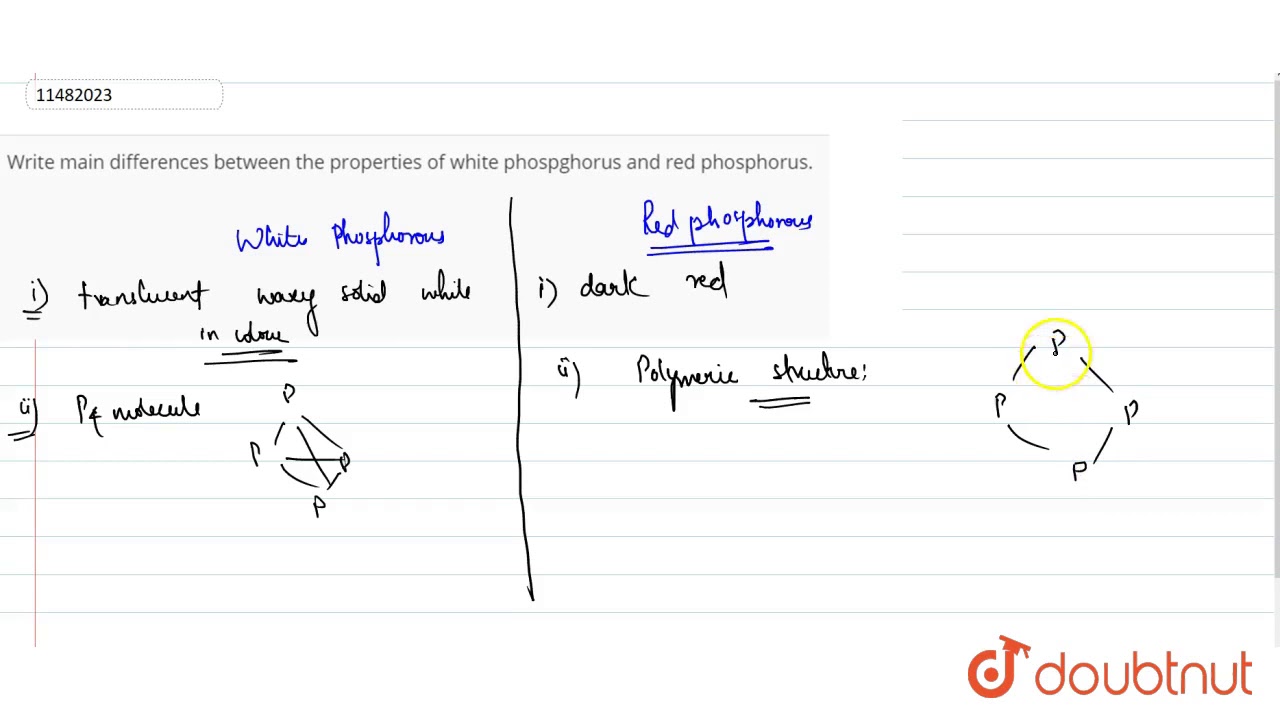 11482023
Write main differences between the properties of white phospghorus and red phosphorus.
White Phosphorous
Red phosphorous
i) translucent waxy solid white
in colour
i) dark red
ii) P4 molecule
ii) Polymeric structure:
P
P
P
P
P
P
P
P
doubtnut